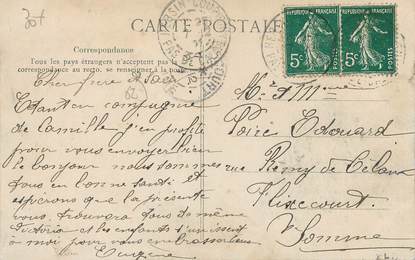 CARTE POSTALE
Correspondance
Tous les pays étrangers n'acceptent pas la
correspondance au recto, se renseigner à la poste
REPUBLIQUE FRANÇAISE
5c
POSTES
REPUBLIQUE FRANÇAISE
5c
POSTES
Cher frère et
Étant en compagnie
de Camille j'en profite
pour vous envoyer bien
le bonjour nous sommes
tous en bonne santé et
espérons que la présente
vous trouvera tous de même
Victoria et les enfants s'unissent
à moi pour vous embrasser
Eugène
Mr et Mme
Poiré Edouard
rue Remy de
Flixecourt
Somme